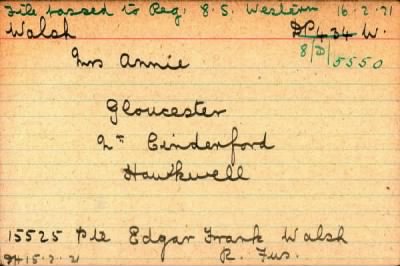 File passed to Reg: 8. S. Western 16.2.21
Walsh DP 434 W.
8/D/5550
Mrs Annie
Gloucester
Nr Cinderford
Hawkwell
15525 Pte Edgar Frank Walsh
R. Fus.
15.2.21